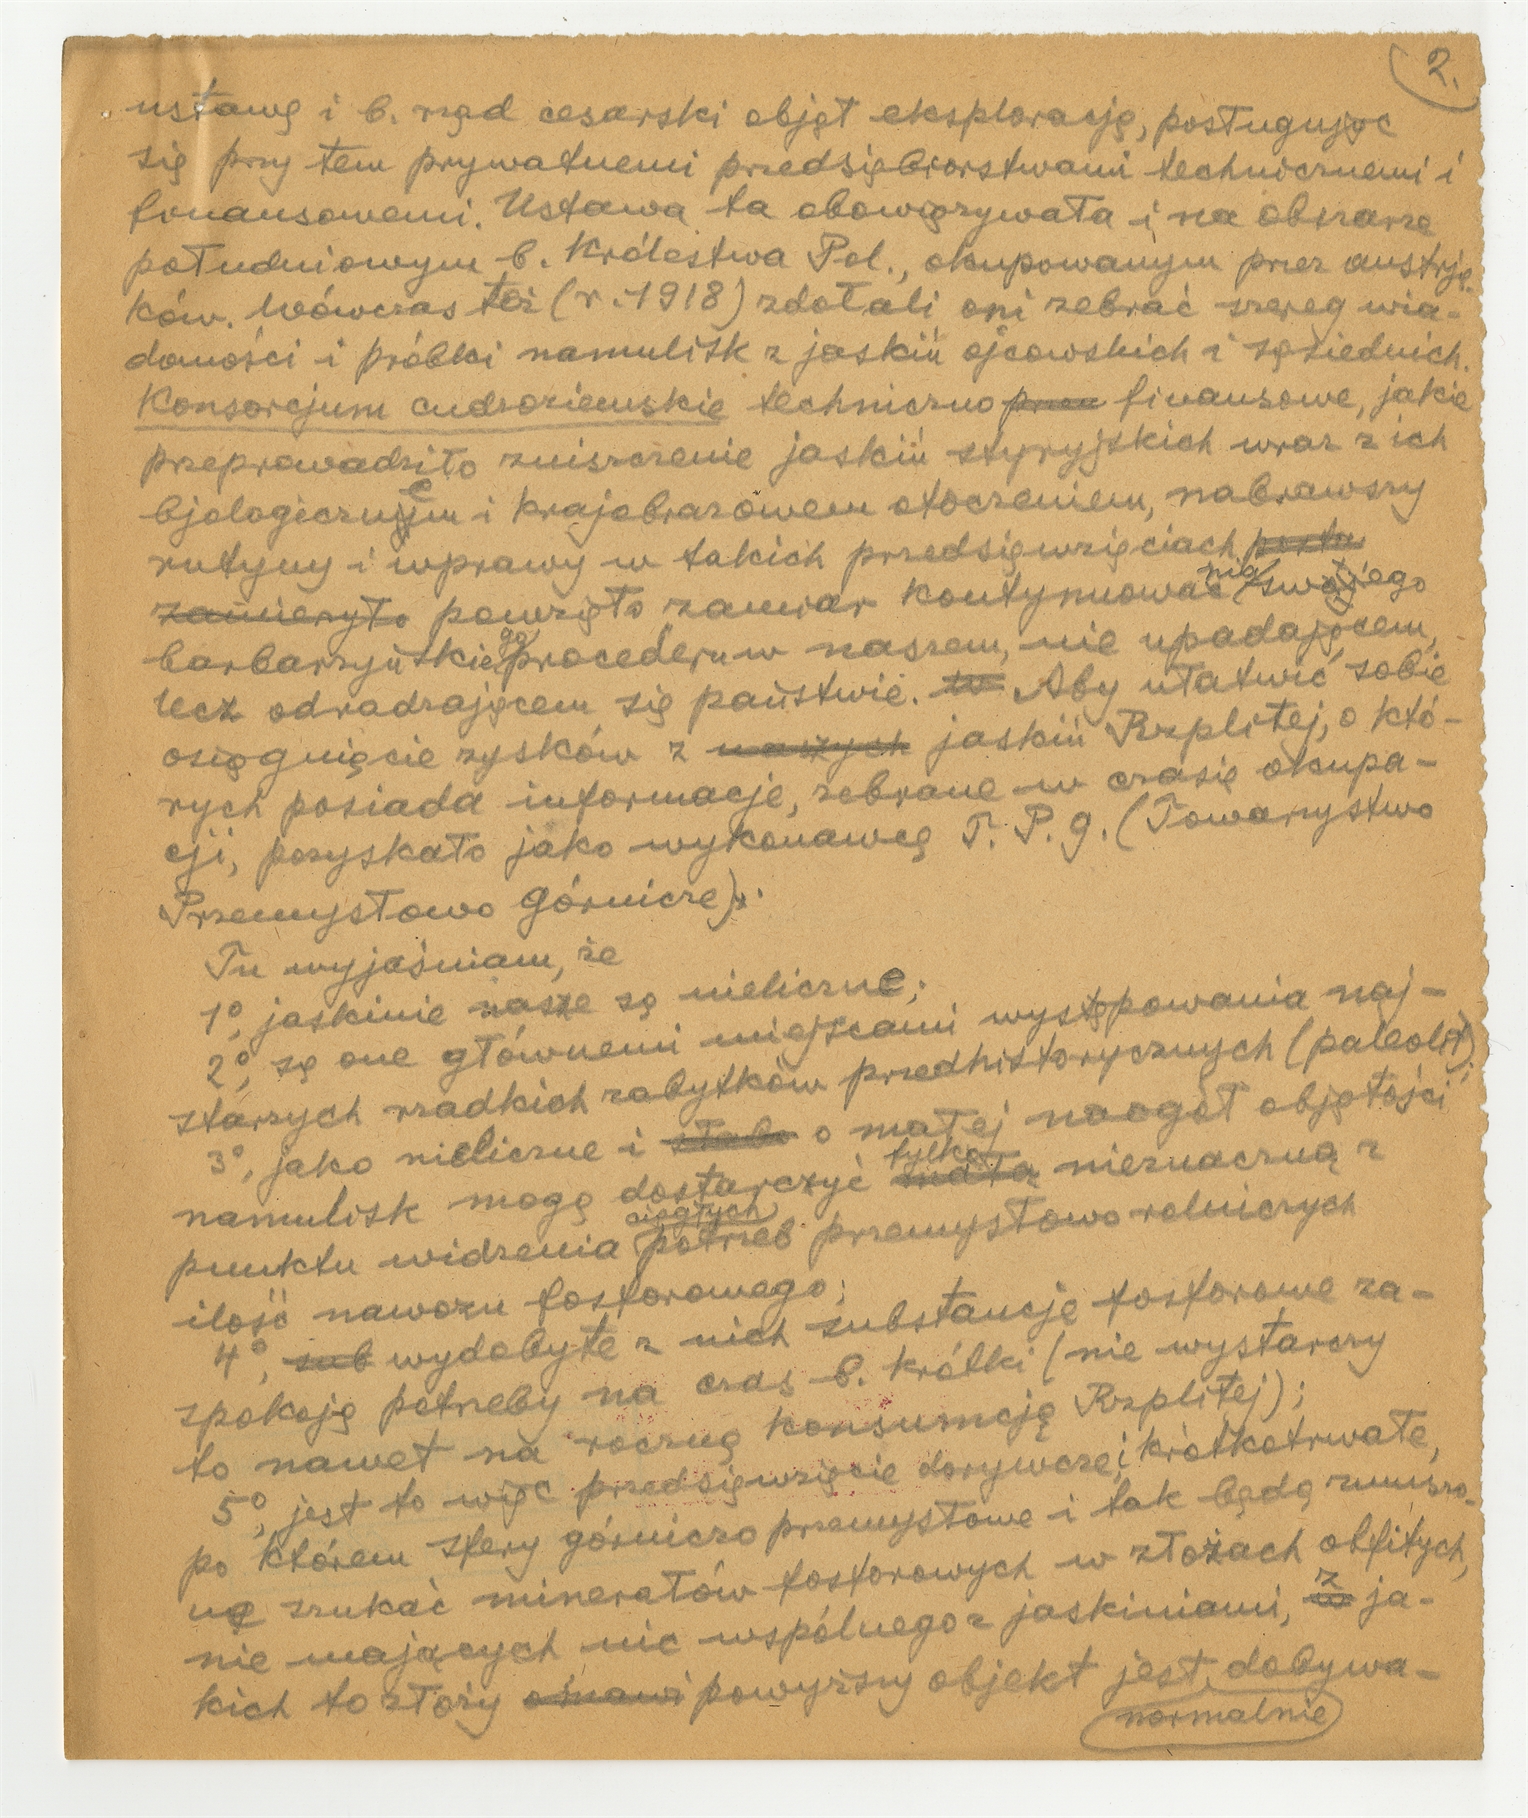 2.
ustawę i b. rząd cesarski objął eksploracją, posługując
się przy tem prywatnemi przedsiębiorstwami technicznemi i
finansowemi. Ustawa ta obowiązywała i na obszarze
południowym b. Królestwa Pol., okupowanym przez austrja-
ków. Wówczas też (r. 1918) zdołali oni zebrać szereg wia-
domości i próbki namulisk z jaskiń ojcowskich i sąsiednich.
Konsorcjum cudzoziemskie techniczno przez finansowe, jakie
przeprowadziło zniszczenie jaskiń styryjskich wraz z ich
bjologicznem i krajobrazowem otoczeniem, nabrawszy
rutyny i wprawy w takich przedsięwzięciach posta
zamierzyło powzięło zamiar kontynuowania swojego
barbarzyńskiego procederu w naszem, nie upadającem,
lecz odradzającem się państwie. w Aby ułatwić sobie
osiągnięcie zysków z naszych jaskiń Rzplitej, o któ-
rych posiada informacje, zebrane w czasie okupa-
cji, pozyskało jako wykonawcę T. P. G. (Towarzystwo
Przemysłowo Górnicze).
Tu wyjaśniam, że
1°, jaskinie nasze są nieliczne;
2°, są one głównemi miejscami występowania naj-
starszych rzadkich zabytków przedhistorycznych (paleolit);
3°, jako nieliczne i słabo o małej naogół objętości
namulisk mogą dostarczyć małą tylko nieznaczną z
punktu widzenia ciągłych potrzeb przemysłowo rolniczych
ilość nawozu fosforowego;
4°, sub wydobyte z nich substancje fosforowe za-
spokoją potrzeby na czas b. krótki (nie wystarczy
to nawet na roczną konsumcją Rzplitej);
5°, jest to więc przedsięwzięcie dorywcze i krótkotrwałe,
po którem sfery górniczo przemysłowe i tak będą zmuszo-
ne szukać minerałów fosforowych w złożach obfitych,
nie mających nic wspólnego z jaskiniami, w z ja-
kich to złóży omawi powyższy objekt jest dobywa-
normalnie